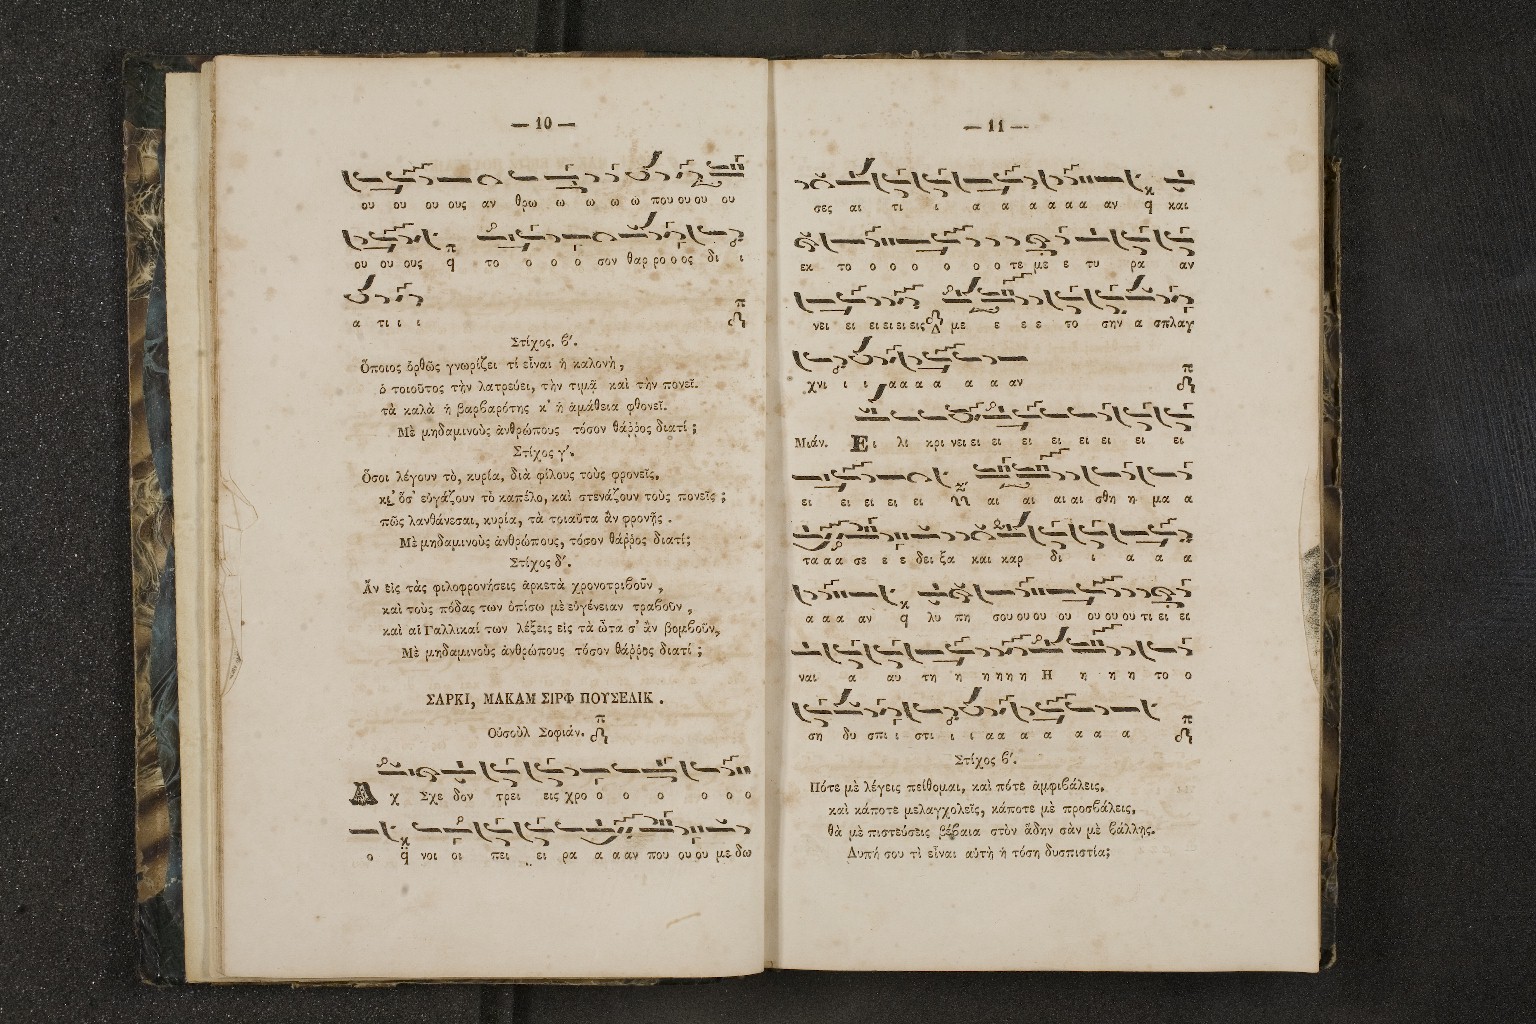 — 10 —
ου ου ου ους αν θρω ω ω ω ω που ου ου ου
ου ου ους το ο ο ο σον θαρ ρο ο ος δι ι
α τι ι ι
Στίχος. β΄.
Ὅποιος ὀρθῶς γνωρίζει τί εἶναι ἡ καλονή,
ὁ τοιοῦτος τὴν λατρεύει, τὴν τιμᾷ καὶ τὴν πονεῖ.
τὰ καλὰ ἡ βαρβαρότης κ' ἡ ἀμάθεια φθονεῖ.
Μὲ μηδαμινοὺς ἀνθρώπους τόσον θάῤῥος διατί;
Στίχος γ΄.
Ὅσοι λέγουν τὸ, κυρία, διὰ φίλους τοὺς φρονεῖς,
κι' ὅσ' εὐγάζουν τὸ καπέλο, καὶ στενάζουν τοὺς πονεῖς;
πῶς λανθάνεσαι, κυρία, τὰ τοιαῦτα ἂν φρονῇς.
Μὲ μηδαμινοὺς ἀνθρώπους, τόσον θάῤῥος διατί;
Στίχος δ΄.
Ἂν εἰς τὰς φιλοφρονήσεις ἀρκετὰ χρονοτριβοῦν,
καὶ τοὺς πόδας των ὀπίσω μὲ εὐγένειαν τραβοῦν,
καὶ αἱ Γαλλικαί των λέξεις εἰς τὰ ὦτα σ' ἂν βομβοῦν,
Μὲ μηδαμινοὺς ἀνθρώπους τόσον θάῤῥος διατί;
ΣΑΡΚΙ, ΜΑΚΑΜ ΣΙΡΦ ΠΟΥΣΕΛΙΚ.
Οὐσοὺλ Σοφιάν.
Α χ Σχε δον τρει εις χρο ο ο ο ο ο ο
ο νοι οι πει ει ρα α α αν που ου ου με δω
— 11 —
σες αι τι ι α α α α α α αν και
εκ το ο ο ο ο ο ο τε με ε τυ ρα αν
νει ει ει ει ει εις με ε ε ε το σην α σπλαγ
χνι ι ι α α α α α α αν
Μιάν. Ει λι κρι νει ει ει ει ει ει ει ει ει ει
ει ει ει ει ει αι αι αι αι σθη η μα α
τα α α σε ε ε δει ξα και καρ δι ι α α α
α α α αν λυ πη σου ου ου ου ου ου ου τι ει ει
ναι α αυ τη η η η η η Η η η η το ο
ση δυ σπι ι στι ι ι α α α α α α α
Στίχος β΄.
Πότε μὲ λέγεις πείθομαι, καὶ πότε ἀμφιβάλεις,
καὶ κάποτε μελαγχολεῖς, κάποτε μὲ προσβάλεις,
θὰ μὲ πιστεύσεις βέβαια στὸν ἅδην σὰν μὲ βάλλῃς.
Λυπή σου τὶ εἶναι αὐτὴ ἡ τόση δυσπιστία;